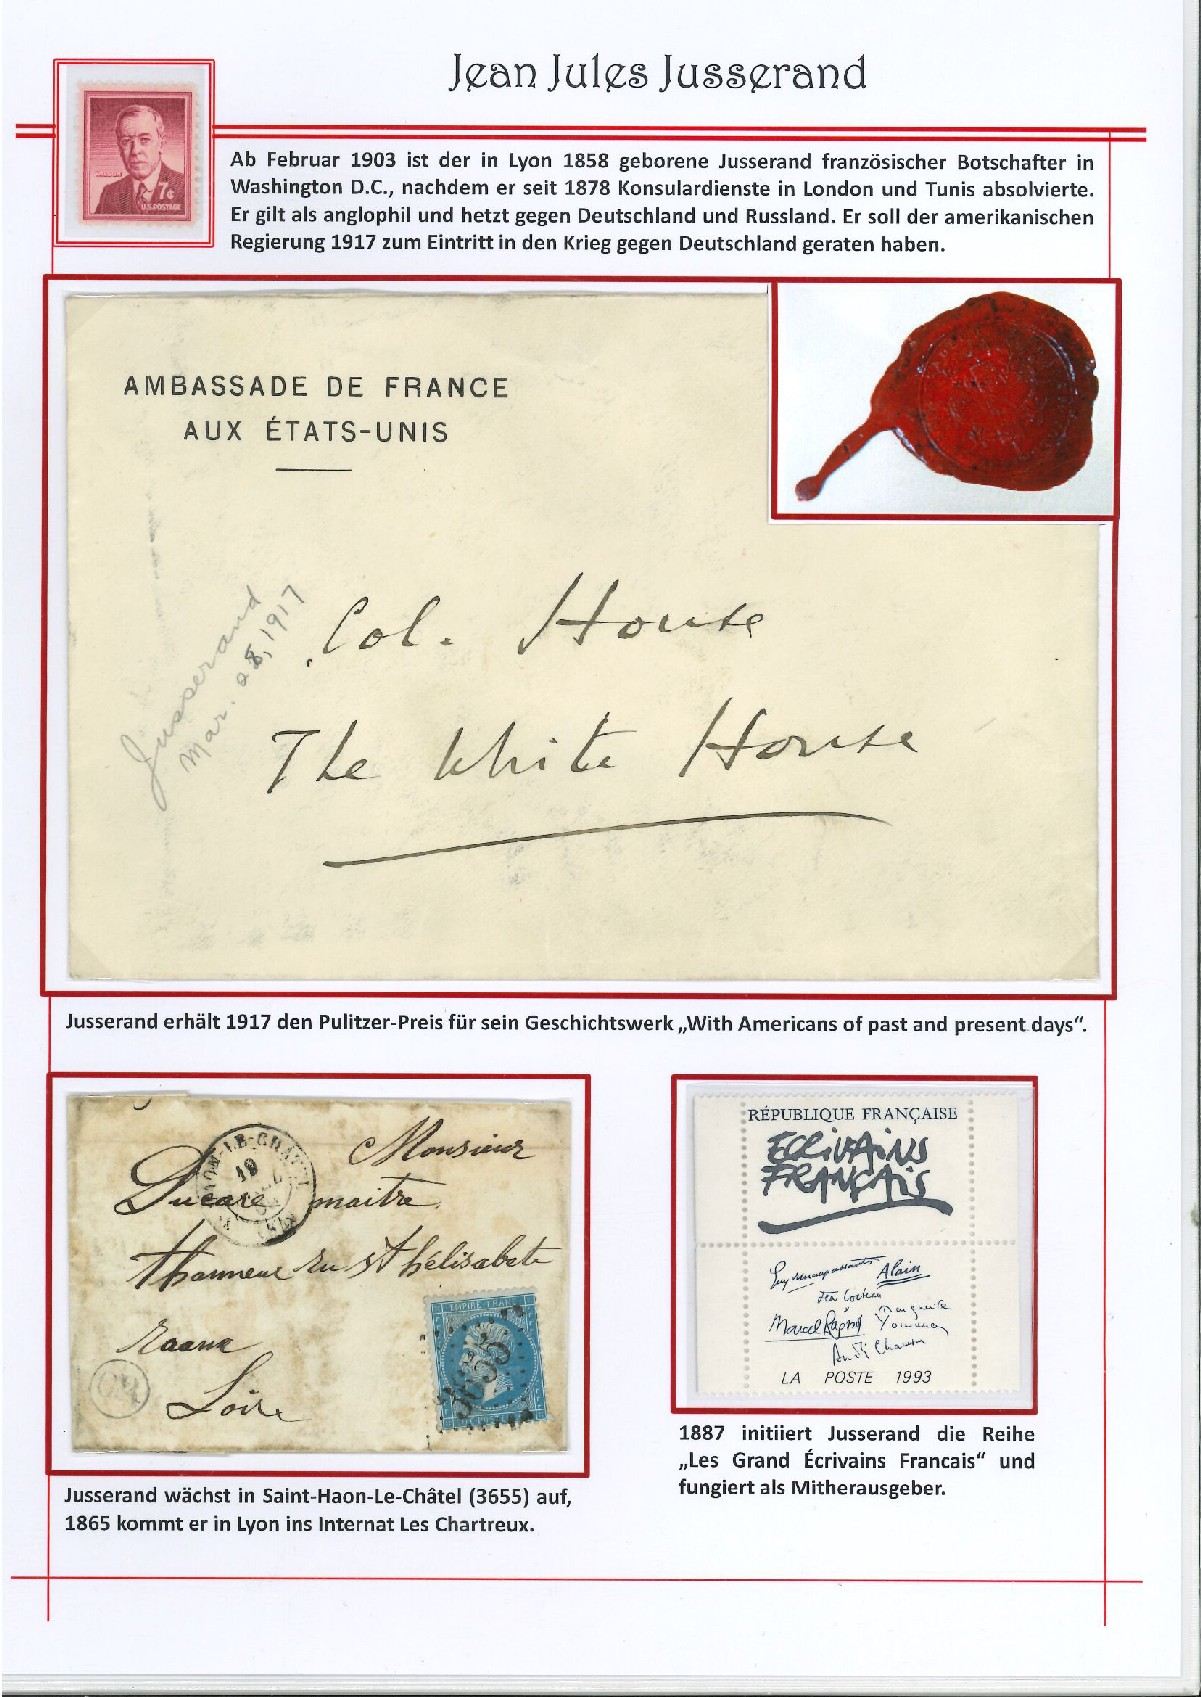 Jean Jules Jusserand
WILSON
7¢
U.S. POSTAGE
Ab Februar 1903 ist der in Lyon 1858 geborene Jusserand französischer Botschafter in
Washington D.C., nachdem er seit 1878 Konsulardienste in London und Tunis absolvierte.
Er gilt als anglophil und hetzt gegen Deutschland und Russland. Er soll der amerikanischen
Regierung 1917 zum Eintritt in den Krieg gegen Deutschland geraten haben.
AMBASSADE DE FRANCE
AUX ÉTATS-UNIS
Jusserand
Mar. 28, 1917
Col. House
The White House
Jusserand erhält 1917 den Pulitzer-Preis für sein Geschichtswerk „With Americans of past and present days“.
Monsieur
Ducare maitre
thanneur ru st hélisabete
roanne
Loire
ON-LE-CHAT
19
OR
EMPIRE FRAN
3655
Jusserand wächst in Saint-Haon-Le-Châtel (3655) auf,
1865 kommt er in Lyon ins Internat Les Chartreux.
RÉPUBLIQUE FRANÇAISE
ECRIVAINS
FRANÇAIS
Guy de maupassant
Alain
Jean Cocteau
Marcel Pagnol
Marguerite
Yourcenar
André Chamson
LA POSTE 1993
1887 initiiert Jusserand die Reihe
„Les Grand Écrivains Francais“ und
fungiert als Mitherausgeber.